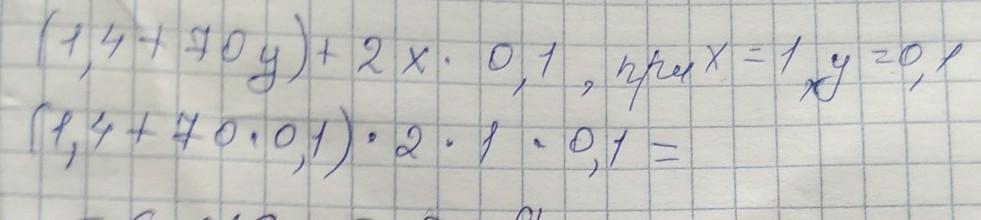 (1,4+70y)+2x·0,1, при x=1, y=0,1
(1,4+70·0,1)·2·1·0,1=